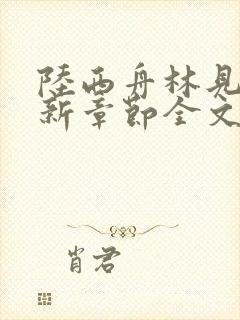 陸西舟林見
新章節全文
肖君